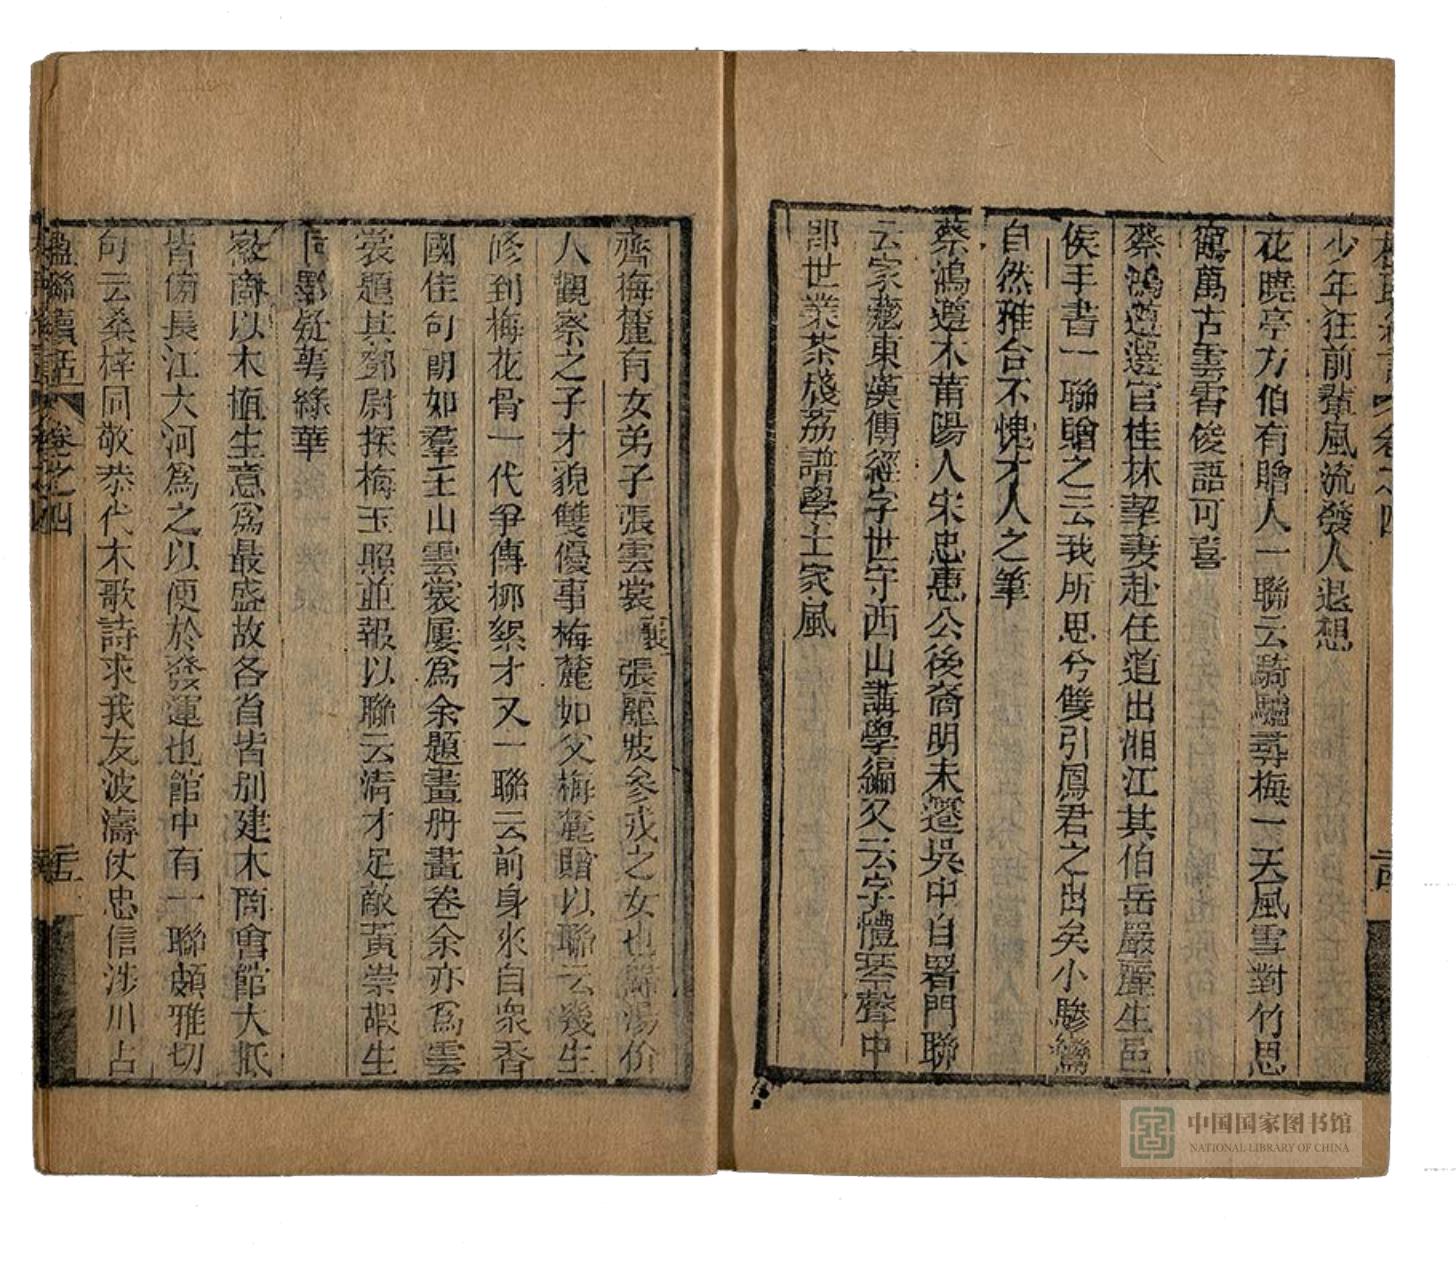 少年狂前輩風流發人遐想
花曉亭方伯有贈人一聯云騎驢尋梅一天風雪對竹思
鶴萬古雲霄俊語可喜
蔡鴻遵選官桂林挈妻赴任道出湘江其伯岳嚴麗生邑
侯手書一聯贈之云我所思兮雙引鳳君之出矣小驂鸞
自然雅合不愧才人之筆
蔡鴻遵木莆陽人宋忠惠公後裔明末遷吳中自署門聯
云家藏東漢傳經字世守西山講學編又云字體琴聲中
郎世業茶棧荔譜學士家風
齊梅麓有女弟子張雲裳 張麗坡參戎之女也歸湯价
人觀察之子才貌雙優事梅麓如父梅麓贈以聯云幾生
修到梅花骨一代爭傳柳絮才又一聯云前身來自眾香
國佳句朗如羣玉山雲裳屢為余題畫冊畫卷余亦為雲
裳題其鄧尉探梅玉照並報以聯云清才足敵黃崇嘏生
同鄂疑萼綠華
徽商以木植生意為最盛故各省皆別建木商會館大抵
皆傍長江大河為之以便於發運也館中有一聯頗雅切
句云桑梓同敬恭代木歌詩求我友波濤仗忠信涉川占
楹聯續話 卷之四
中国国家图书馆
NATIONAL LIBRARY OF CHINA